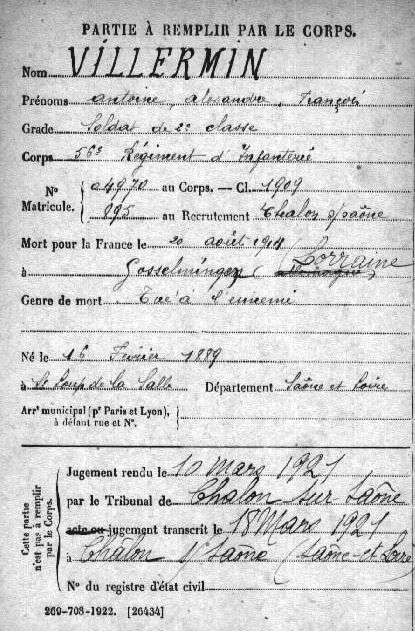 PARTIE À REMPLIR PAR LE CORPS.
Nom VILLERMIN
Prénoms antoine, alexandre, François
Grade Soldat de 2e classe
Corps 56e Régiment d'Infanterie
N° Matricule. { 04970 au Corps. — Cl. 1909
895 au Recrutement Chalon s/saône
Mort pour la France le 20 août 1914
à Gosselmingen (Lorraine
Genre de mort Tué à l'ennemi
Né le 16 Février 1889
à St Loup de la Salle Département Saône et Loire
Arrt municipal (pr Paris et Lyon), à défaut rue et N°.
Cette partie n'est pas à remplir par le Corps.
Jugement rendu le 10 Mars 1921
par le Tribunal de Chalon sur Saône
acte ou jugement transcrit le 18 Mars 1921
à Châlon s/ Saône (Saône-et-Loire)
N° du registre d'état civil
269-708-1922. [26434]